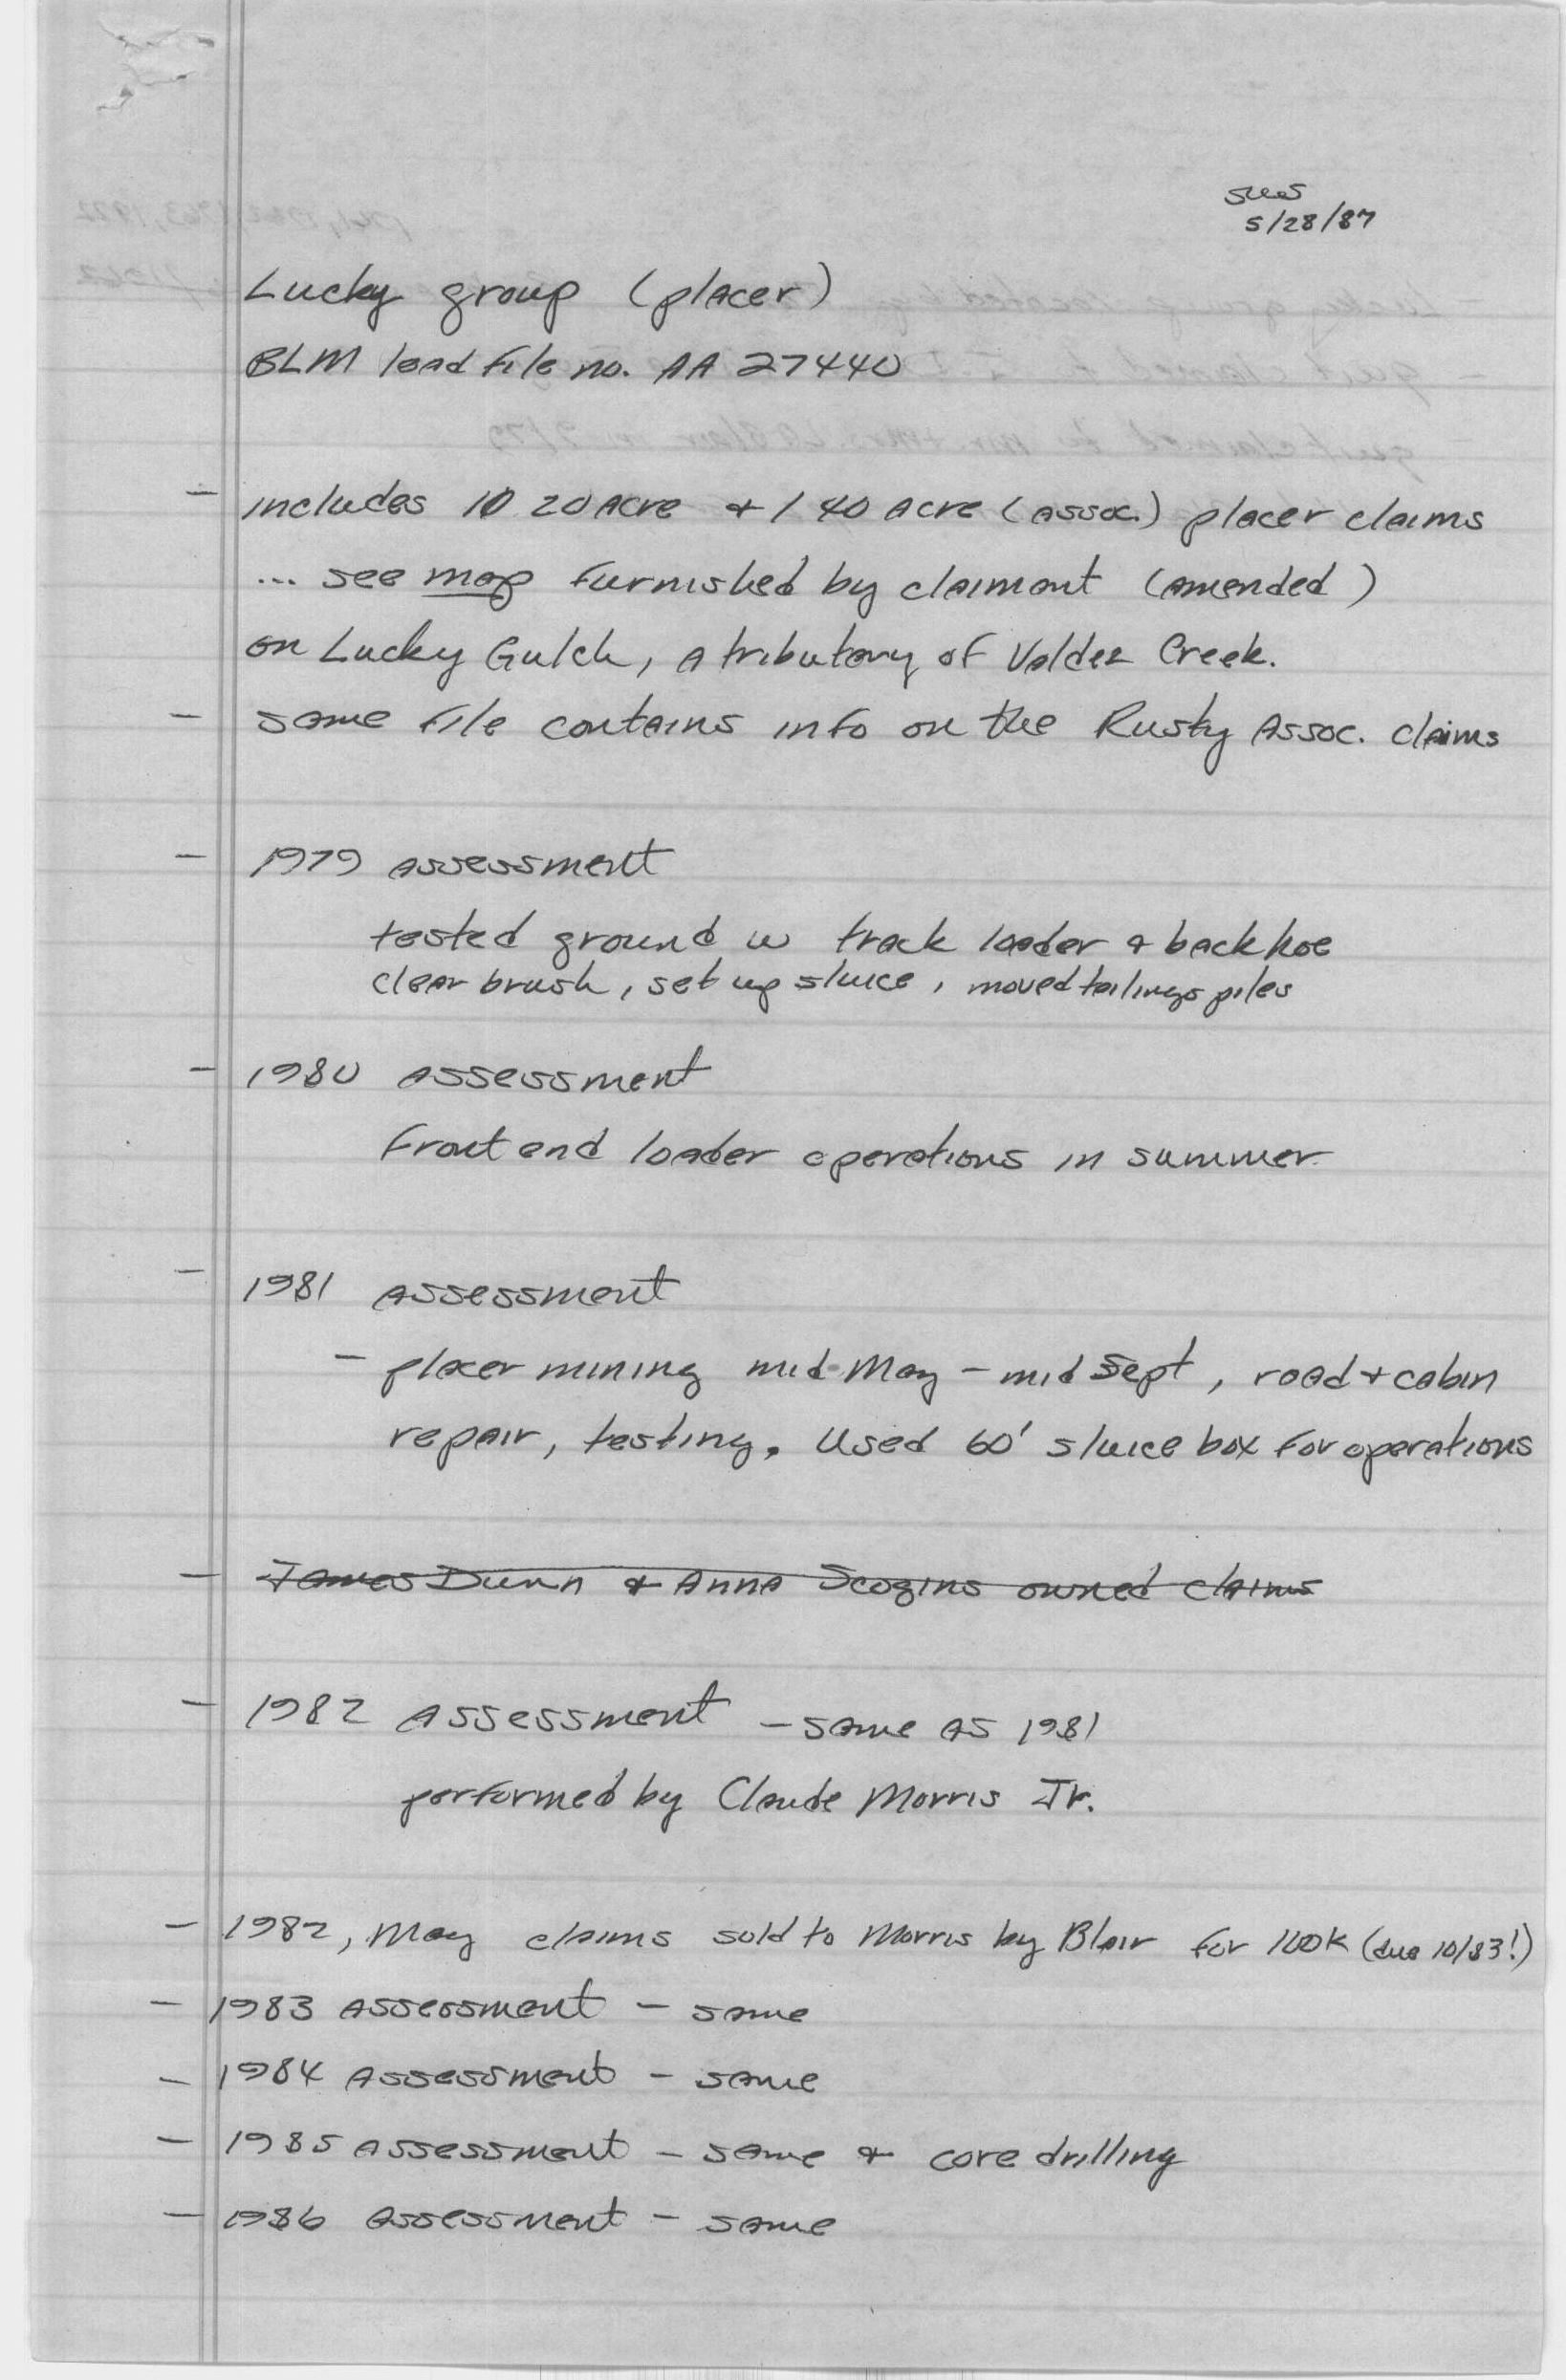 5/28/87
Lucky group (placer)
BLM lead file no. AA 27440
- includes 10 20 acre + 1 40 acre (assoc.) placer claims
... see map furnished by claimant (amended)
on Lucky Gulch, a tributary of Valdez Creek.
- same file contains info on the Rusty Assoc. claims
- 1979 assessment
tested ground w track loader & backhoe
clear brush, set up sluice, moved tailings piles
- 1980 assessment
Front end loader operations in summer.
- 1981 assessment
- placer mining mid-May - mid Sept, road + cabin
repair, testing. Used 60' sluice box for operations
- James Dunn & Anna Scogins owned claims
- 1982 Assessment - same as 1981
performed by Claude Morris Jr.
- 1982, May claims sold to Morris by Blair for 100K (due 10/83!)
- 1983 assessment - same
- 1984 assessment - same
- 1985 assessment - same & core drilling
- 1986 assessment - same